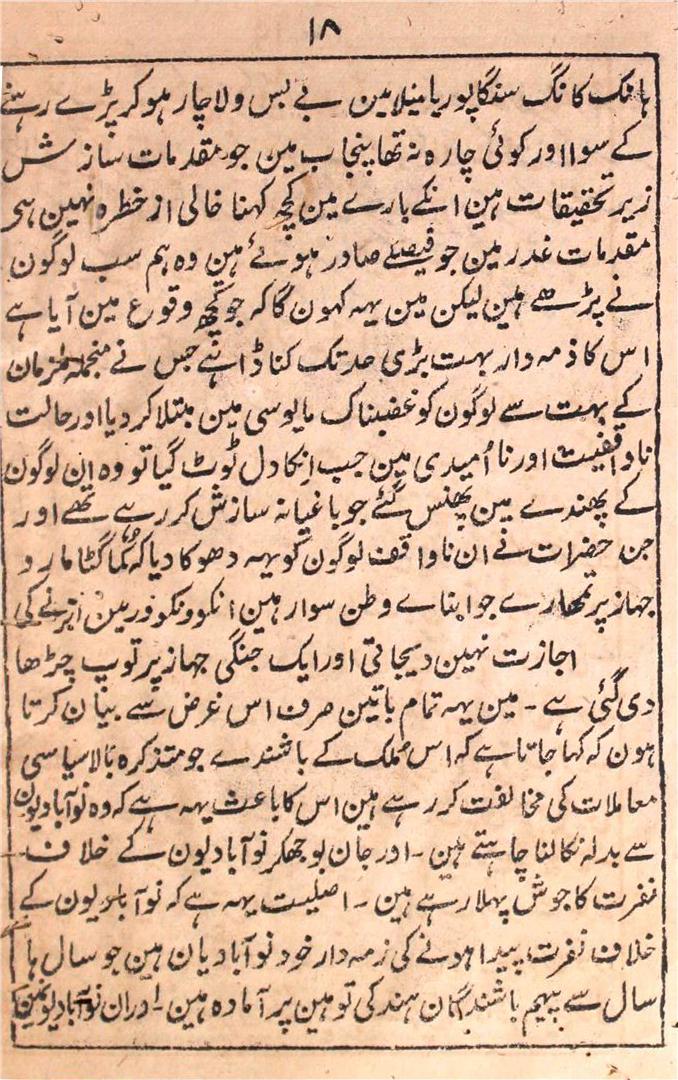 ۱۸
ہانک کانگ سنگاپور یا منیلا مین بے بس و لاچار ہو کر پڑے رہنے
کے سوا اور کوئی چارہ نہ تھا پنجاب مین جو مقدمات سازش
زیر تحقیقات ہین انکے بارے مین کچھ کہنا خالی از خطرہ نہین ہی
مقدمات غدر مین جو فیصلے صادر ہوئے ہین وہ ہم سب لوگون
نے پڑھے ہین لیکن مین یہہ کہون گا کہ جو کچھ وقوع مین آیا ہے
اس کا ذمہ دار بہت بڑی حد تک کناڈا ہے جس نے منجملہ ملزمان
کے بہت سے لوگون کو غضبناک مایوسی مین مبتلا کر دیا اور حالت
ناواقفیت اور نا اُمیدی مین جب اِنکا دل ٹوٹ گیا تو وہ اِن لوگون
کے پھندے مین پھنس گئے جو باغیانہ سازش کر رہے تھے اور
جن حضرات نے ان ناواقف لوگون کو یہہ دھوکا دیا کہ کُماگٹا مارو
جہاز پر تمھارے جو ابناے وطن سوار ہین انکو ونکوور مین اترنے کی
اجازت نہین دیجاتی اور ایک جنگی جہاز پر توپ چڑھا
دی گئی ہے ۔ مین یہہ تمام باتین صرف اس غرض سے بیان کرتا
ہون کہ کہا جاتا ہے کہ اس مُلک کے باشندے جو متذکرہ بالا سیاسی
معاملات کی مخالفت کر رہے ہین اس کا باعث یہہ ہے کہ وہ نوآبادیون
سے بدلہ نکالنا چاہتے ہین ۔ اور جان بوجھکر نوآبادیون کے خلاف
نفرت کا جوش پہلا رہے ہین ۔ اصلیت یہہ ہے کہ نوآبادیون کے
خلاف نفرت پیدا ہونے کی زمہ دار خود نوآبادیان ہین جو سال ہا
سال سے پیہم باشندگان ہند کی توہین پر آمادہ ہین ۔ اور ان نوآبادیونمین